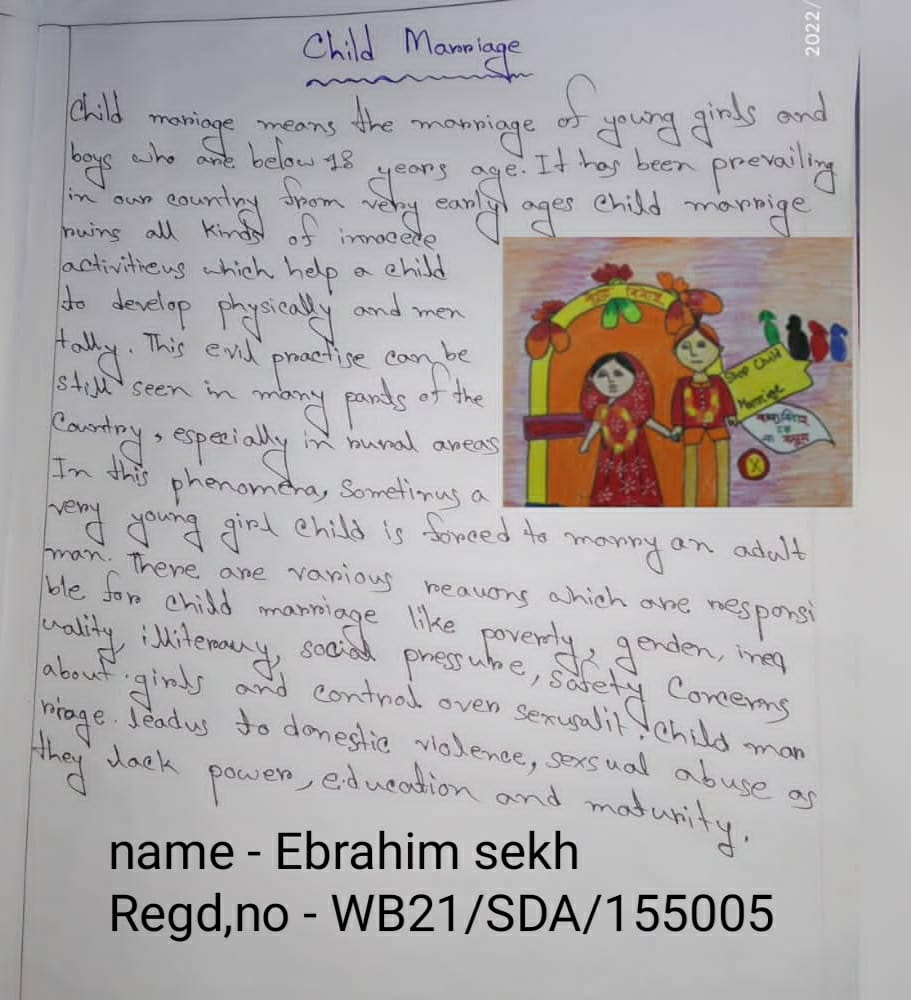 2022/
Child Marriage
Child marriage means the marriage of young girls and
boys who are below 18 years age. It has been prevailing
in our country from very early ages child marrige
ruins all kinds of innocede
activitieus which help a child
to develop physically and men
tally. This evil practise can be
still seen in many parts of the
Country, especially in rural areas
In this phenomena, Sometimus a
very young girl child is forced to marry an adult
man. There are various reauons which are responsi
ble for child marriage like poverty, gender, ineq
uality, illiterauy, social pressure, safety Concerns
about girls and control over sexusalit. Child mar
riage leadus to domestic violence, sexsual abuse as
they lack power, education and maturity.
Stop Child
Marriage
name - Ebrahim sekh
Regd,no - WB21/SDA/155005